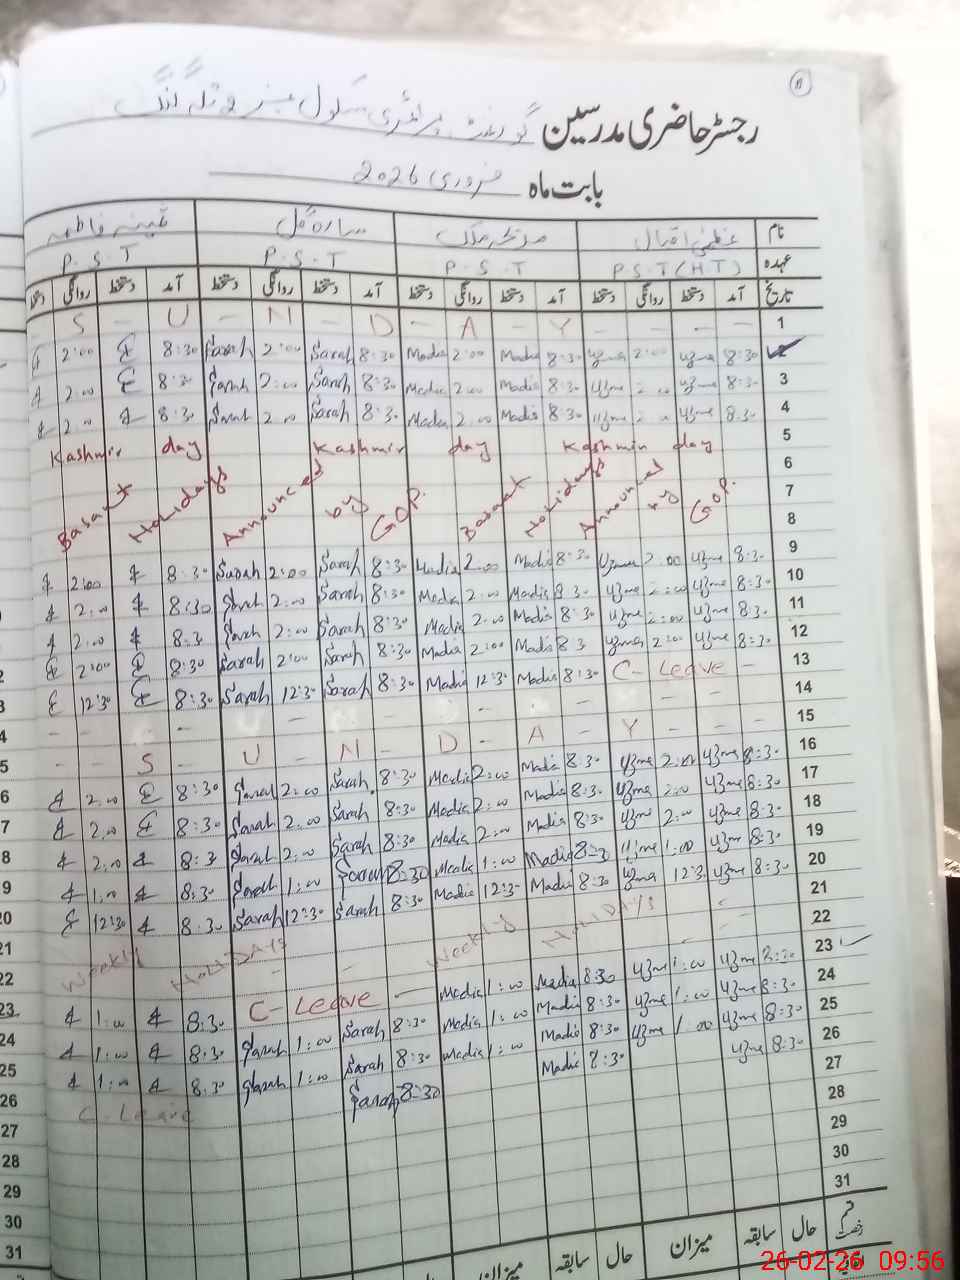 11
رجسٹر حاضری مدرسین گورنمنٹ پرائمری سکول
بابت ماہ فروری 2026
نام عظمیٰ اقبال ملک سارہ گل فاطمہ
عہدہ P.S.T (HT) P.S.T P.S.T P.S.T
تاریخ آمد دستخط روانگی دستخط آمد دستخط روانگی دستخط آمد دستخط روانگی دستخط آمد دستخط روانگی دستخط
S - U - N - D - A - Y - - - 1
2:00 8:30 Sarah 2:00 Sarah 8:30 Madia 2:00 Madia 8:30 Uzma 2:00 Uzma 8:30 2
2:00 8:30 Sarah 2:00 Sarah 8:30 Madia 2:00 Madia 8:30 Uzma 2:00 Uzma 8:30 3
2:00 8:30 Sarah 2:00 Sarah 8:30 Madia 2:00 Madia 8:30 Uzma 2:00 Uzma 8:30 4
Kashmir day Kashmir day Kashmir day 5
6
Basant Holidays Announced by GOP. Basant Holidays Announced by GOP. 7
8
2:00 8:30 Sarah 2:00 Sarah 8:30 Madia 2:00 Madia 8:30 Uzma 2:00 Uzma 8:30 9
2:00 8:30 Sarah 2:00 Sarah 8:30 Madia 2:00 Madia 8:30 Uzma 2:00 Uzma 8:30 10
2:00 8:30 Sarah 2:00 Sarah 8:30 Madia 2:00 Madia 8:30 Uzma 2:00 Uzma 8:30 11
2:00 8:30 Sarah 2:00 Sarah 8:30 Madia 2:00 Madia 8:30 Uzma 2:00 Uzma 8:30 12
12:30 8:30 Sarah 12:30 Sarah 8:30 Madia 12:30 Madia 8:30 C- Leave - 13
14
- - S - U - N - D - A - Y - - 15
2:00 8:30 Sarah 2:00 Sarah 8:30 Madia 2:00 Madia 8:30 Uzma 2:00 Uzma 8:30 16
2:00 8:30 Sarah 2:00 Sarah 8:30 Madia 2:00 Madia 8:30 Uzma 2:00 Uzma 8:30 17
2:00 8:30 Sarah 2:00 Sarah 8:30 Madia 2:00 Madia 8:30 Uzma 2:00 Uzma 8:30 18
1:00 8:30 Sarah 1:00 Sarah 8:30 Madia 1:00 Madia 8:30 Uzma 1:00 Uzma 8:30 19
12:30 8:30 Sarah 12:30 Sarah 8:30 Madia 12:30 Madia 8:30 Uzma 12:30 Uzma 8:30 20
21
WEEKLY HOLIDAYS WEEKLY HOLIDAYS 22
1:00 8:30 C- Leave - Madia 1:00 Madia 8:30 Uzma 1:00 Uzma 8:30 23
1:00 8:30 Sarah 1:00 Sarah 8:30 Madia 1:00 Madia 8:30 Uzma 1:00 Uzma 8:30 24
1:00 8:30 Sarah 1:00 Sarah 8:30 Madia 1:00 Madia 8:30 Uzma 1:00 Uzma 8:30 25
C-Leave Sarah 8:30 Madia 8:30 Uzma 8:30 26
27
28
29
30
31
قسم رخصت حال سابقہ میزان حال سابقہ میزان
26-02-26 09:56